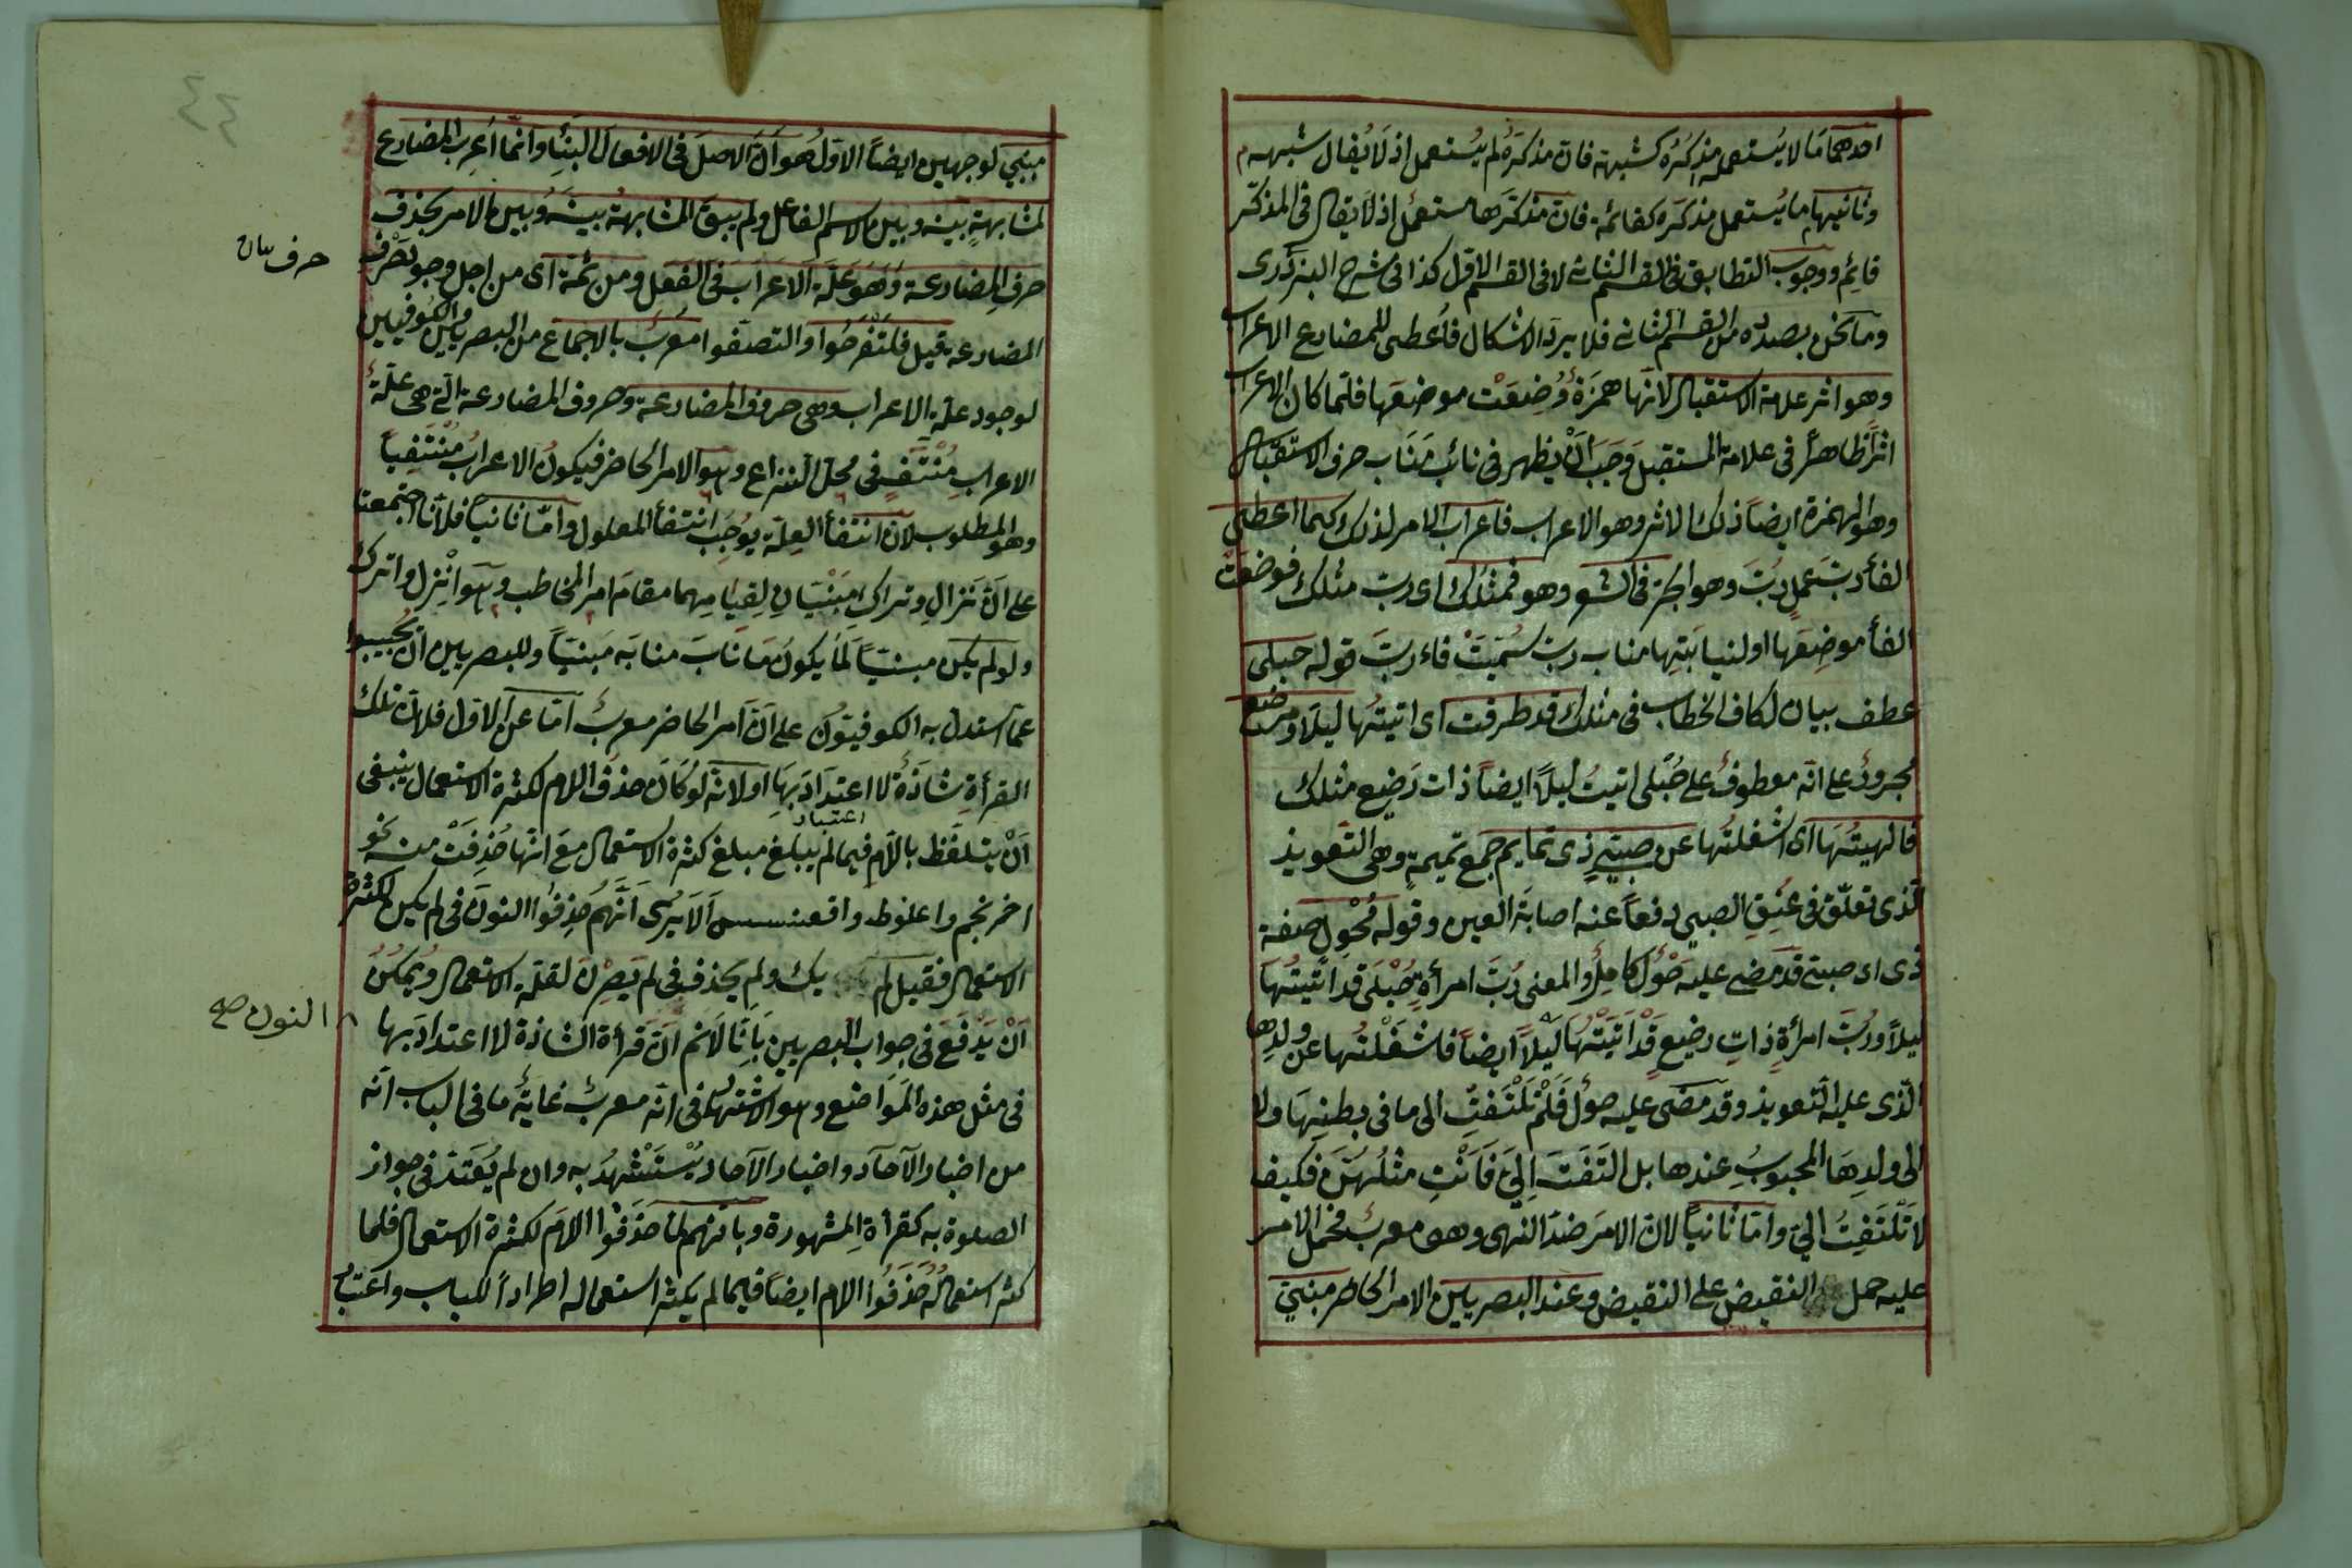 احدهما ما لا يستعمل مذكره كشبهة فان مذكره لم يستعمل اذ لا يقال شبهه
وثانيهما ما يستعمل مذكره كقائمة فان مذكرها مستعمل اذ لا يقال فى المذكر
قائم ووجوب التطابق فى القسم الثانى لا فى القسم الاول كذا فى شرح البزدرى
وما نحن بصدده من القسم الثانى فلا يرد الاشكال فاعطى للمضارع الاعراب
وهو اثر علامة الاستقبال لانها همزة وُضِعَت موضعها فلما كان الاعراب
اثراً ظاهراً فى علامة المستقبل وَجَبَ اَنْ يظهر فى نائب مَنَاب حرف الاستقبال
وهو الهمزة ايضاً ذلك الاثر وهو الاعراب فاعراب الامر لذلك كما اعطى
الفأ ربَّ عمل رُبَّ وهو الجرّ فى الشعر وهو فمثلك اى ربّ مثلك فوضعت
الفأ موضِعَها او لنيابتِها مناب ربّ سُمّيَتْ فاء ربّ قوله حبلى
عطف بيان لكاف الخطاب فى مثلك قد طرقت اى اتيتُها ليلاً ومرضع
مجرورٌ على انّه معطوفٌ على حُبْلى اتيتُ ليلاً ايضاً ذات رَضِيع مثلك
فالهيتُهَا اى اشغلتُها عن صبىٍّ ذى تمايم جمع تميمةٍ وهى التّعويذ
الّذى تعلّق فى عُنِقِ الصبى دفعاً عنه اصابة العين وقوله مُحْوِلِ صفة
ذى اى صبىّ قد مضى عليه حَوْلٌ كامِلٌ والمعنى رُبَّ امرأةٍ حُبْلَى قد اتيتُهَا
ليلاً ورُبَّ امرأةٍ ذاتِ رضيعٍ قَدْ اَتَيْتُهَا لَيْلاً ايضاً فاشغَلْتُها عن ولدِها
الّذى عليه التّعويذ وقد مضى عليه حولٌ فَلَمْ تَلْتَفِتْ الى ما فى بطنِهَا ولا
الى ولدِهَا المحبوبُ عندها بل التَفَتَ اِلىَّ فَاَنْتِ مثلُهُنَّ فكيف
لا تَلْتَفِتُ الىّ وامّا ثانياً لانّ الامرَ ضدّ النهى وهو معربٌ فحُمل الامر
عليه حمل النقيض على النقيض وعند البصريين الامر الحاضر مبنىٌّ
٤٤
مبنىٌّ لوجهين ايضاً الاوّل هُو اَنّ الاصلَ فى الافعال البنأ وانّما اُعرِب المضارع
لمشابهةٍ بَيْنه وبين الاسم الفاعل ولم يبقَ المشابهةُ بينَه وبين الامر بحذف
حرف المضارعة وَهُوَ عِلّة الاعرابَ فى الفعل ومن ثمّة اى من اجل وجود حرف
المضارعة قيل فلتفرحُوا والتصدّقوا معربٌ بالاجماع من البصريين والكوفيين
لوجود علّة الاعراب وهى حروف المضارعة وحروف المضارعة الّتى هى علّة
الاعراب مُنْتَفٍ فى محلّ النّزاع وهو الامر الحاضر فيكون الاعرابُ منتفياً
وهو المطلوب لانّ انتفأ العلّة يُوجَب انتفأ المعلول وامّا ثانياً فلانّا اجتمعنا
على انّ نَزَالِ وتراكِ مَبْنيّانِ لِقيَامِهما مقامَ امر المخاطب وهو انْزِل واترك
ولو لم يكن مبنيّاً لَمَا يكونُ مَا نابَ منابَه مَبنيّاً وللبصريين انْ يجيبوا
عمّا استدلّ به الكوفيّون على انّ امر الحاضر معربٌ امّا عن الاوّل فلانّ تلك
القرأة شاذّةٌ لا اعتدادَ بهَا او لانّه لو كَانَ حذف اللام لكثرة الاستعمال ينبغى
اعتبار
اَنْ يتلفّظ باللّام فيما لم يبلغ مبلغ كثرة الاستعمال معَ انّها حُذِفَتْ من نحو
احرنجم واعلوط واقعنسس اَلَا يَرَى اَنَّهُمْ حذفوا النونَ فى لم يكن لكثرة
الاستعمال فقيل لم يك ولم يحذف فى لم يَصِرْنَ لقلّة الاستعمال ويُمكنُ
اَنْ يَدْفَعَ فى جواب البصريين بَانّا لانم انّ قرأة الشّاذة لا اعتدادَ بها
فى مثل هذه المَوَاضع وهو الاشتهار فى انّه معربٌ غايةُ ما فى الباب انّه
من اخبار الآحآد واخبار الآحاد يُسْتَشْهَدُ به وان لم يُعْتَدّ فى جواز
الصلوة به كقرأة المشهورة وبانّهم لمّا حَذَفوا اللامَ لكثرة الاستعمال فلما
كثر استعمالُه حَذَفُوا اللام ايضاً فيما لم يكثر استعماله اطراداً للباب واعتبار
حرف بيان
النون صح